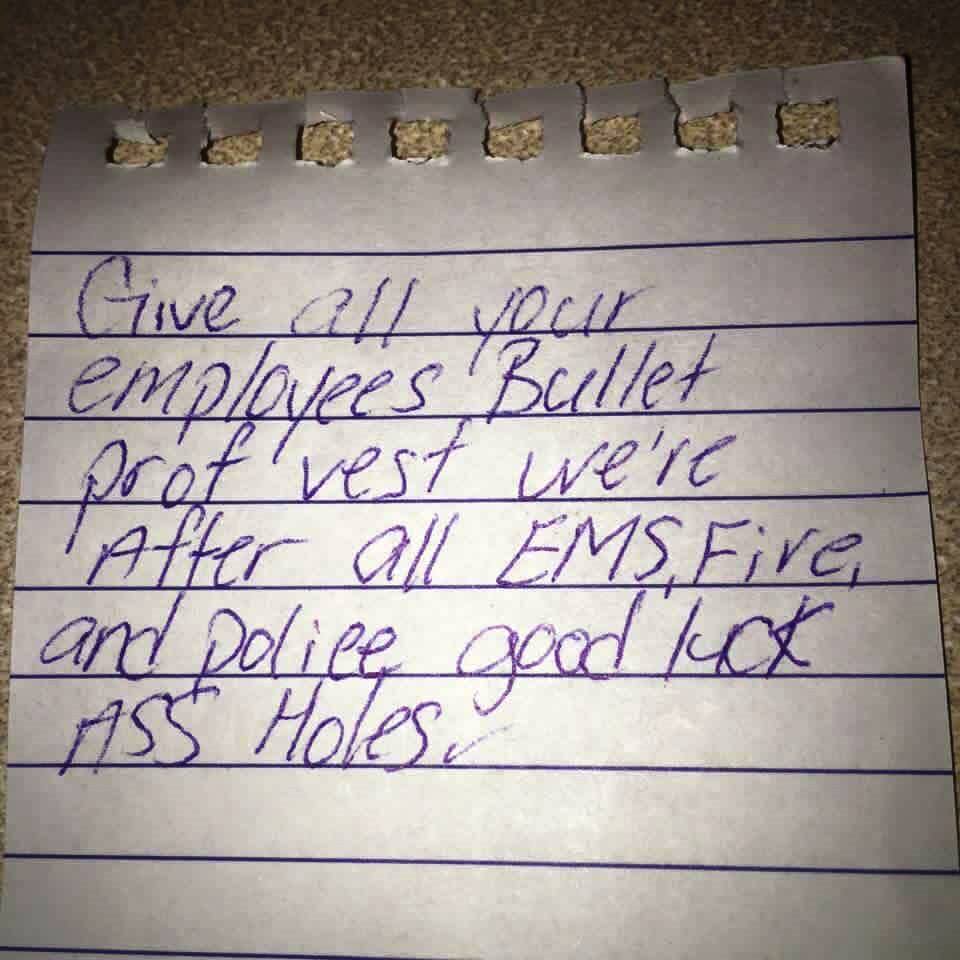 Give all your
employees Bullet
prof vest we're
After all EMS, Fire,
and police good luck
ASS Holes.